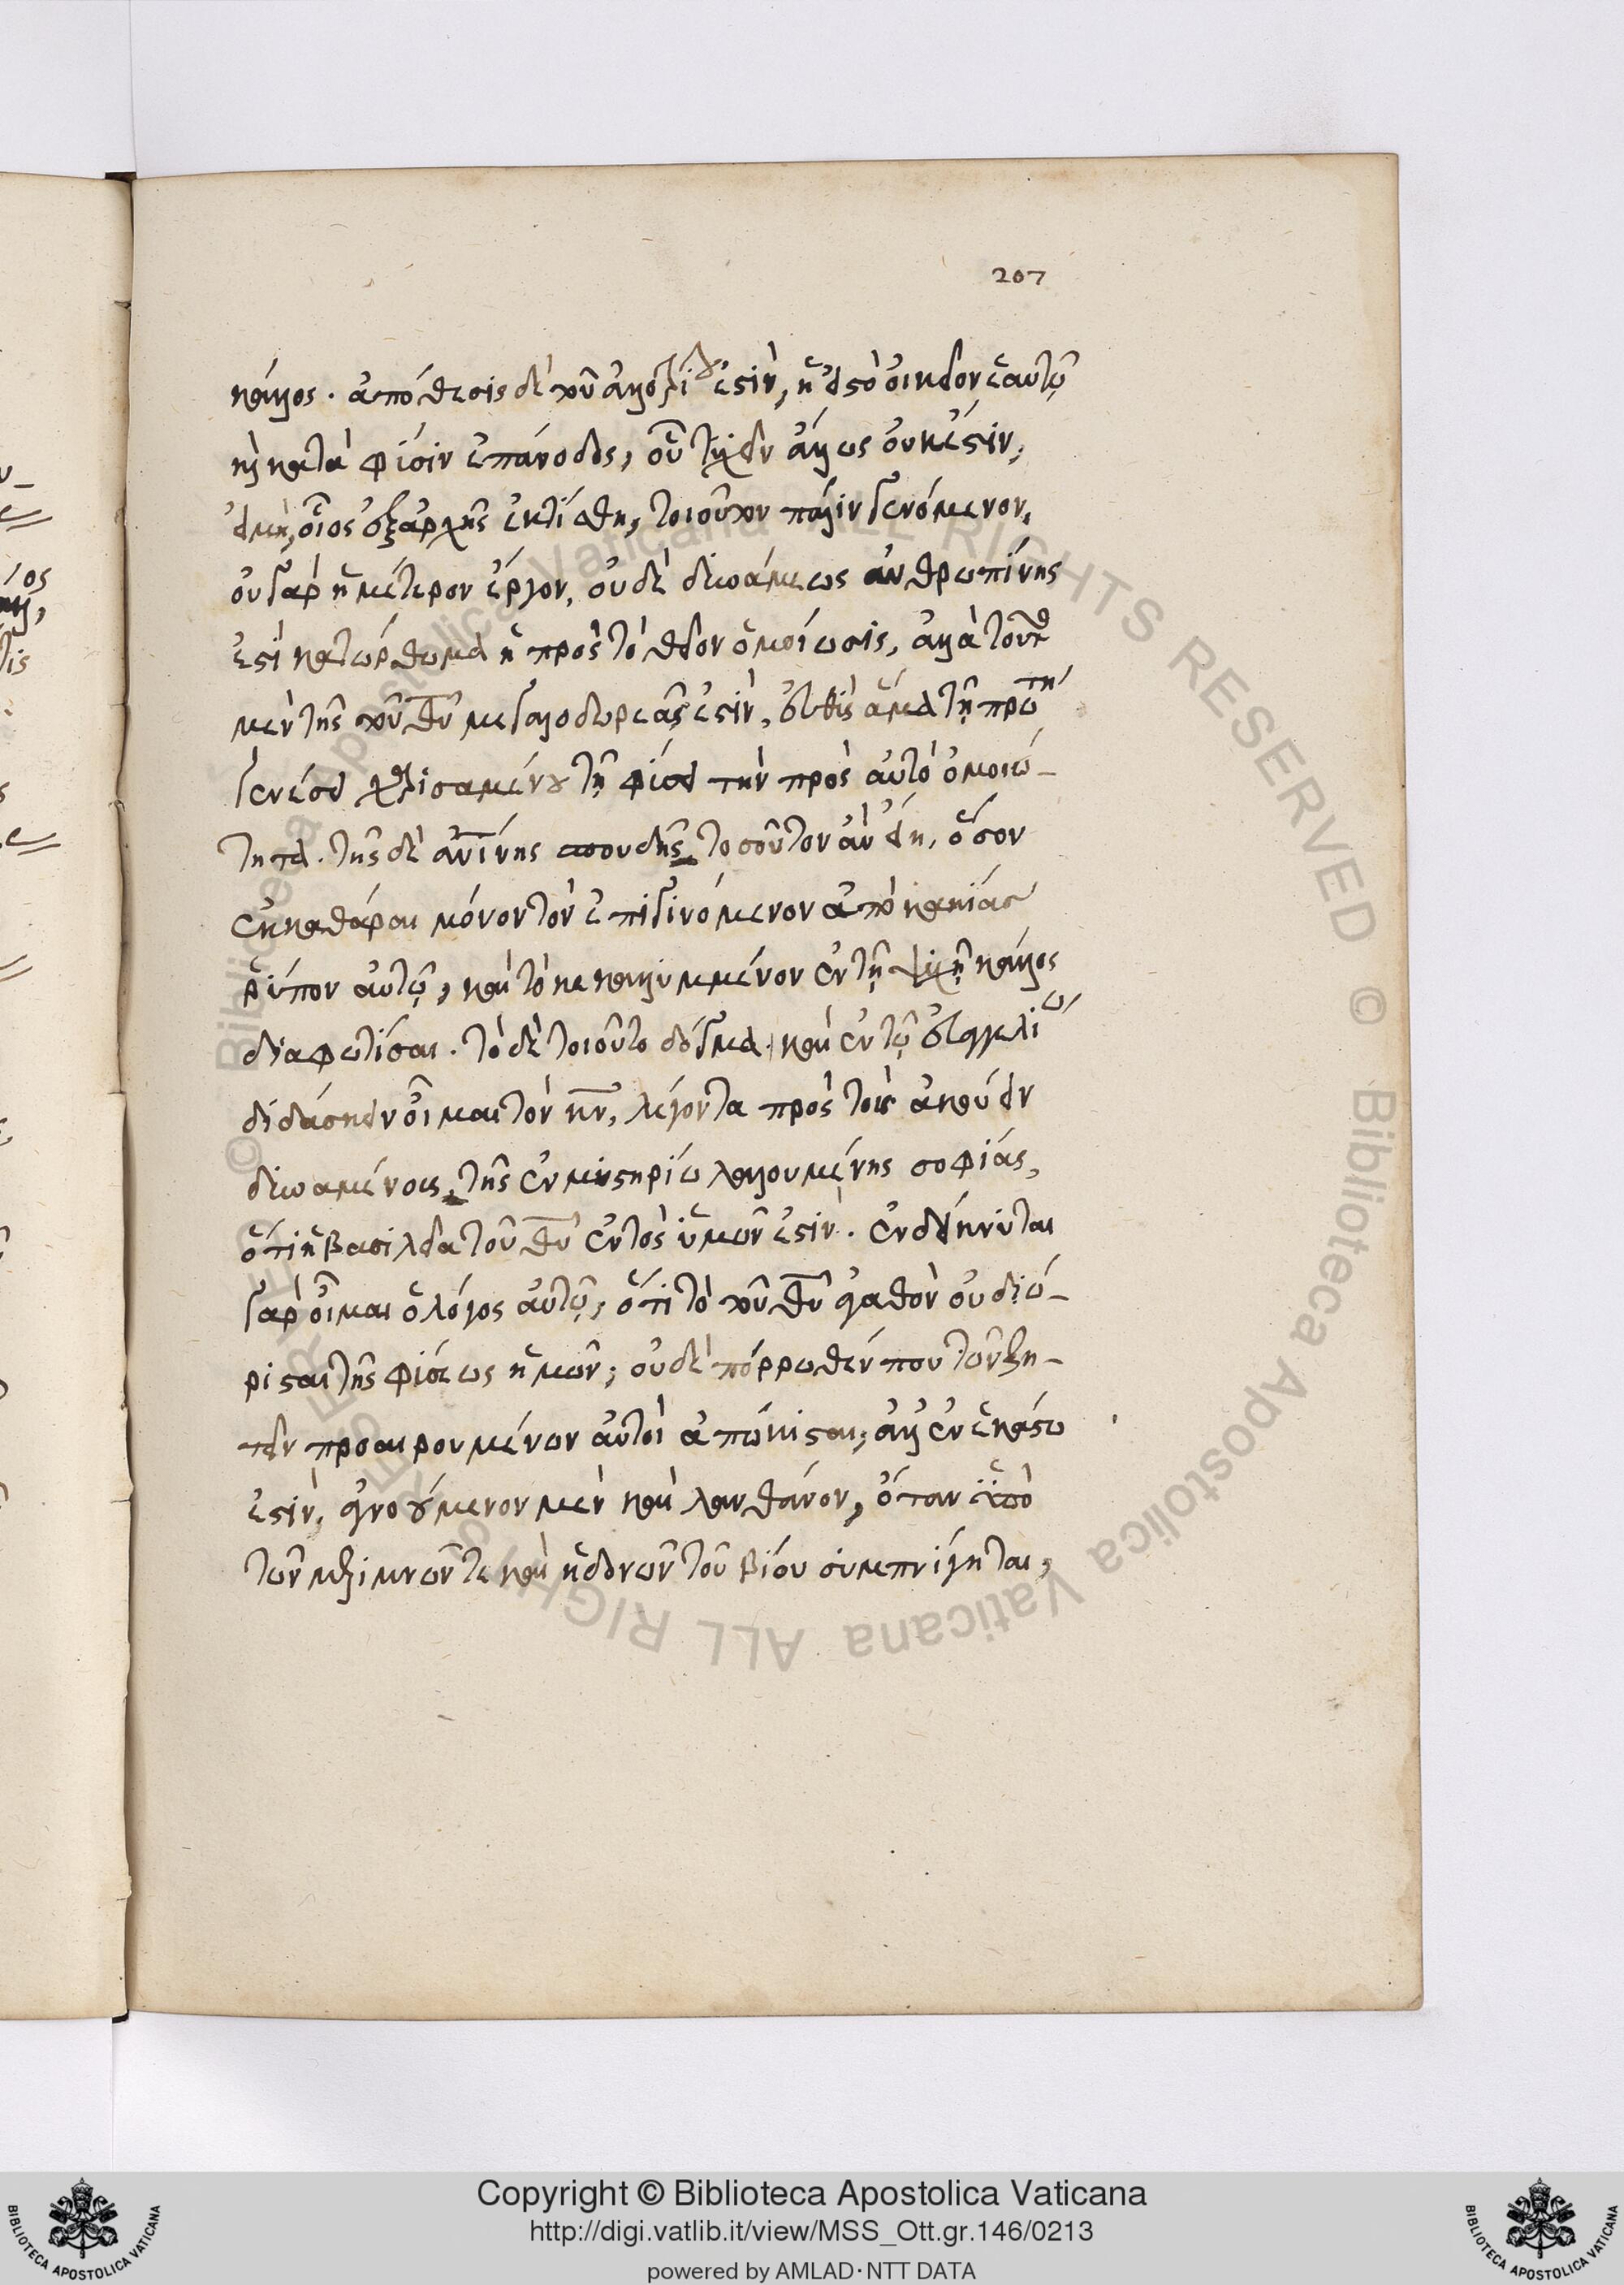 207
κάλλος. ἀπόθεσις δὲ τοῦ ἀλλοτρίου ἐστὶν, ἡ εἰς τὸ οἰκεῖον ἑαυτῷ
κ(αὶ) κατὰ φύσιν ἐπάνοδος, οὗ τυχεῖν ἄλλως οὐκ ἔστιν,
εἰ μὴ, οἷος ἐξ ἀρχῆς ἐκτίσθη, τοιοῦτον πάλιν γενόμενον.
οὐ γὰρ ἡμέτερον ἔργον, οὐδὲ δυνάμεως ἀνθρωπίνης
ἐστὶ κατώρθωμα ἡ πρὸς τὸ θεῖον ὁμοίωσις, ἀλλὰ τοῦτο
μὲν τῆς τοῦ θ̅υ̅ μεγαλοδωρεᾶς ἐστὶν, εὐθὺς ἅμα τῇ πρώτη
γενέσει χαρισαμένου τῇ φύσει τὴν πρὸς αὐτὸ ὁμοιώ-
τητα. τῆς δὲ ἀν̅ί̅νης σπουδῆς τοσοῦτον ἂν εἴη, ὅσον
ἐκκαθάραι μόνον τὸν ἐπιγινόμενον ἀπὸ κακίας
ῥύπον αὐτῷ, καὶ τὸ κεκαλυμμένον ἐν τῇ ψυχῇ κάλλος
διαφωτίσαι. τὸ δὲ τοιοῦτο δόγμα καὶ ἐν τῷ εὐαγγελίω
διδάσκειν οἶμαι τὸν κ̅ν̅, λέγοντα πρὸς τοὺς ἀκούειν
δυναμένους τῆς ἐν μυστηρίω λαλουμένης σοφίας,
ὅτι ἡ βασιλεία τοῦ θ̅υ̅ ἐντὸς ὑμῶν ἐστὶν. ἐνδείκνυται
γὰρ οἶμαι ὁ λόγος αὐτῷ, ὅτι τὸ τοῦ θ̅υ̅ ἀγαθὸν οὐ διώ-
ρισται τῆς φύσεως ἡμῶν, οὐδὲ πόρρωθέν που τῶν ζη-
τεῖν προαιρουμένων αὐτὸ ἀπώκισται, ἀλλ' ἐν ἑκάστω
ἐστὶν, ἀγνοούμενον μὲν καὶ λανθάνον, ὅταν ὑπὸ
τῶν μεριμνῶν τε καὶ ἡδονῶν τοῦ βίου συμπνίγηται,
Copyright © Biblioteca Apostolica Vaticana
http://digi.vatlib.it/view/MSS_Ott.gr.146/0213
powered by AMLAD·NTT DATA